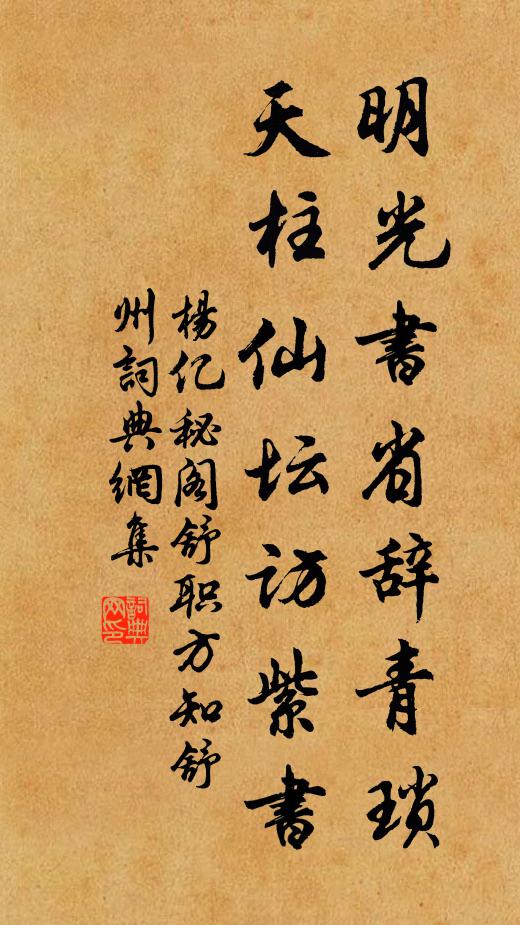 明光書省辞青瑣
天柱仙坛访紫書
楊亿秘阁舒职方知舒
州詞典網集
詞典
网印